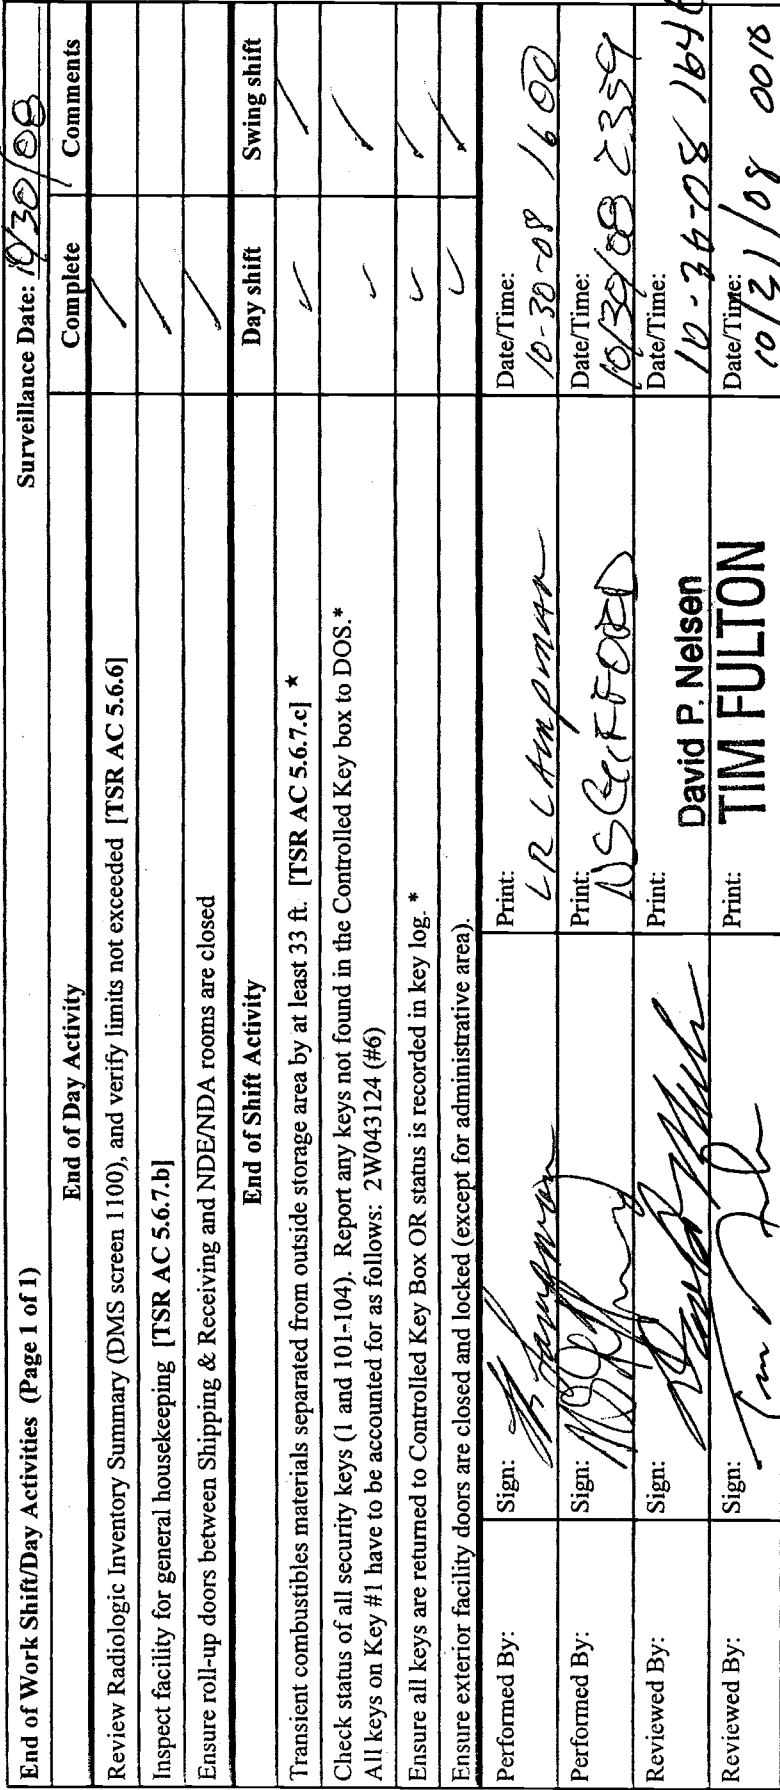 End of Work Shift/Day Activities (Page 1 of 1) Surveillance Date: 10/30/08
End of Day Activity Complete Comments
Review Radiologic Inventory Summary (DMS screen 1100), and verify limits not exceeded [TSR AC 5.6.6]
Inspect facility for general housekeeping [TSR AC 5.6.7.b]
Ensure roll-up doors between Shipping & Receiving and NDE/NDA rooms are closed
End of Shift Activity Day shift Swing shift
Transient combustibles materials separated from outside storage area by at least 33 ft. [TSR AC 5.6.7.c] *
Check status of all security keys (1 and 101-104). Report any keys not found in the Controlled Key box to DOS.*
All keys on Key #1 have to be accounted for as follows: 2W043124 (#6)
Ensure all keys are returned to Controlled Key Box OR status is recorded in key log. *
Ensure exterior facility doors are closed and locked (except for administrative area).
Performed By: Sign: Print: LR LAMPMAN Date/Time: 10-30-08 1600
Performed By: Sign: Print: Date/Time: 10/30/08 2359
Reviewed By: Sign: Print: David P. Nelsen Date/Time: 10-30-08
Reviewed By: Sign: Print: TIM FULTON Date/Time: 10/31/08 0010